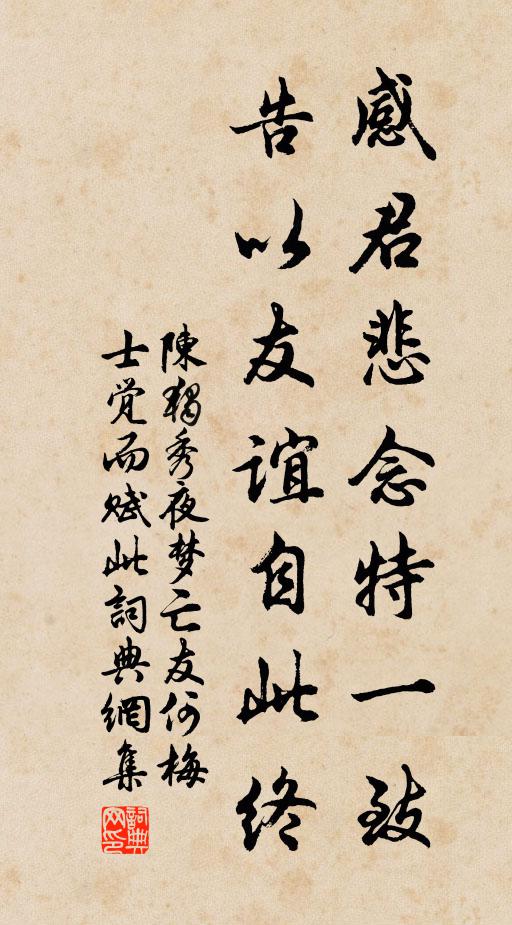 感君悲念特一致
告以友谊自此终
陳獨秀夜梦亡友何梅
士觉而赋此詞典網集
詞典
网印